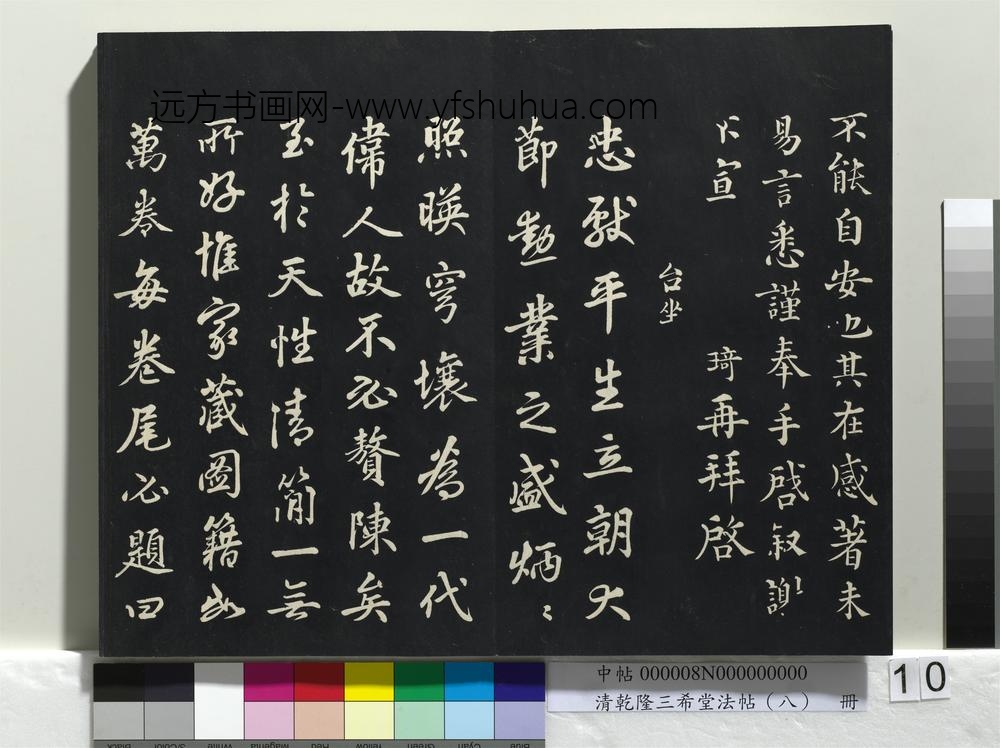 远方书画网-www.yfshuhua.com
不能自安也其在感著未
易言悉謹奉手啓叙謝
不宣
琦再拜啓
台坐
忠獻平生立朝大
節勳業之盛炳〻
照暎穹壤為一代
偉人故不必贅陳矣
至於天性清簡一無
所好惟家藏图籍
萬卷每卷尾必題曰
中帖 000008N000000000
清乾隆三希堂法帖（八） 冊
10
Black
3/Color
White
Magenta
Red
Yellow
Green
Cyan
Blue